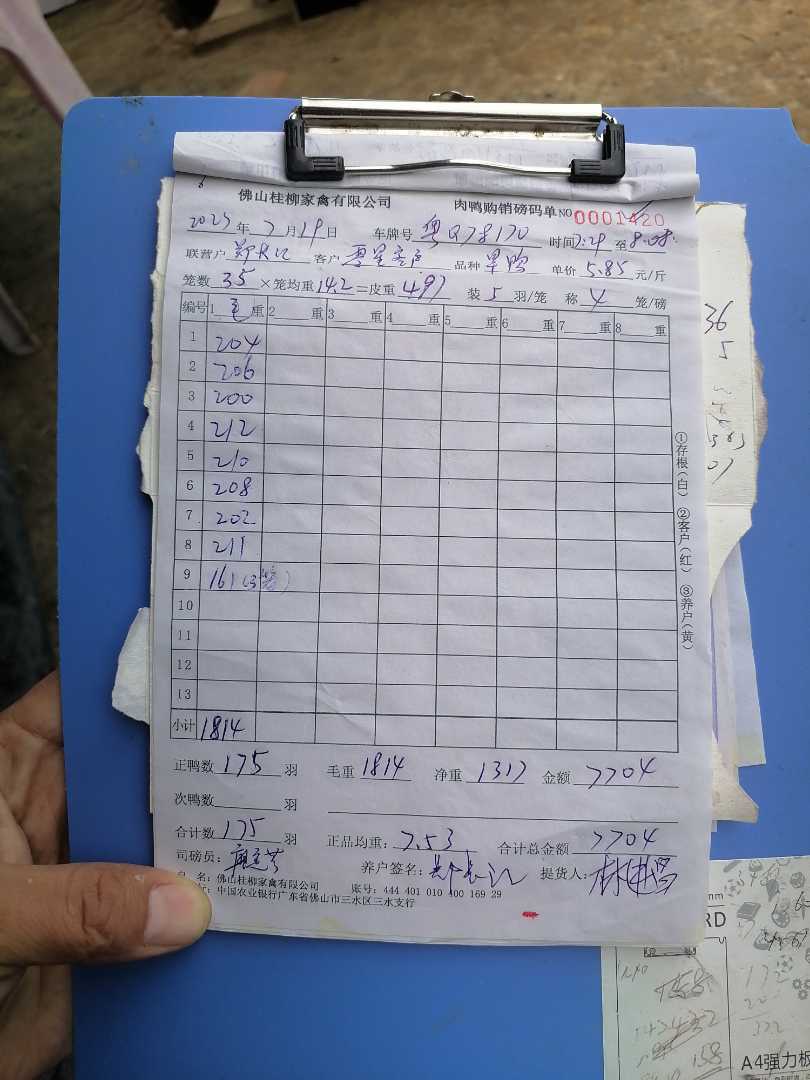 佛山桂柳家禽有限公司 肉鸭购销磅码单 NO 0001420
2025年7月19日 车牌号 粤Q78170 时间7:29至8:08
联营户 客户 品种 单价 5.85 元/斤
笼数 35 ×笼均重 14.2 =皮重 497 装 5 羽/笼 称 4 笼/磅
编号 1 毛 重 2 重 3 重 4 重 5 重 6 重 7 重 8 重
1 204
2 206
3 200
4 212
5 210
6 208
7 202
8 211
9 161(3笼)
10
11
12
13
小计 1814
正鸭数 175 羽 毛重 1814 净重 1317 金额 7704
次鸭数 羽
合计数 175 羽 正品均重: 7.53 合计总金额 7704
司磅员: 养户签名: 提货人:
名: 佛山桂柳家禽有限公司 账号: 444 401 010 400 169 29
中国农业银行广东省佛山市三水区三水支行
①存根(白) ②客户(红) ③养户(黄)
36
5
RD
158
A4强力板